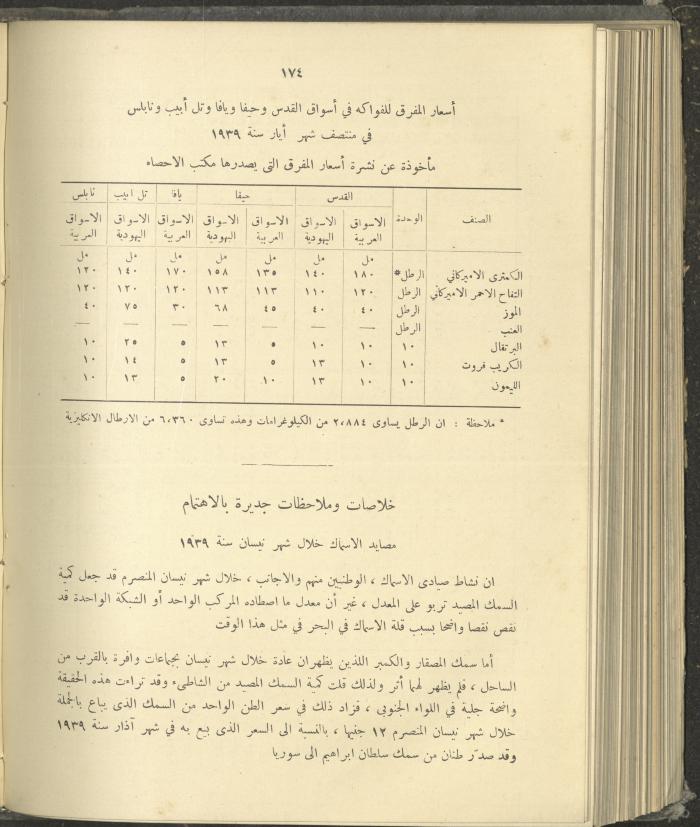 ١٧٤
أسعار المفرق للفواكه في أسواق القدس وحيفا ويافا وتل أبيب ونابلس
في منتصف شهر أيار سنة ١٩٣٩
مأخوذة عن نشرة أسعار المفرق التي يصدرها مكتب الاحصاء
الصنف الوحدة القدس حيفا يافا تل ابيب نابلس
الاسواق الاسواق الاسواق الاسواق الاسواق الاسواق الاسواق
العربية اليهودية العربية اليهودية العربية اليهودية العربية
مل مل مل مل مل مل مل
الكمثرى الاميركاني الرطل* ١٨٠ ١٤٠ ١٣٥ ١٥٨ ١٧٠ ١٤٠ ١٢٠
التفاح الاحمر الاميركاني الرطل ١٢٠ ١١٠ ١١٣ ١١٣ ١٢٠ ١٢٠ ١٢٠
الموز الرطل ٤٠ ٤٠ ٤٥ ٦٨ ٣٠ ٧٥ ٤٠
العنب الرطل — — — — — — —
البرتقال ١٠ ١٠ ١٠ ٥ ١٣ ٥ ٢٥ ١٠
الكريب فروت ١٠ ١٠ ١٣ ٥ ١٣ ٥ ١٤ ١٠
الليمون ١٠ ١٠ ١٣ ١٠ ٢٠ ٥ ١٣ ١٠
* ملاحظة : ان الرطل يساوى ٢،٨٨٤ من الكيلوغرامات وهذه تساوى ٦،٣٦٠ من الارطال الانكليزية
خلاصات وملاحظات جديرة بالاهتمام
مصايد الاسماك خلال شهر نيسان سنة ١٩٣٩
ان نشاط صيادى الاسماك ، الوطنيين منهم والاجانب ، خلال شهر نيسان المنصرم قد جعل كمية
السمك المصيد تربو على المعدل ، غير أن معدل ما اصطاده المركب الواحد أو الشبكة الواحدة قد
نقص نقصا واضحا بسبب قلة الاسماك في البحر في مثل هذا الوقت
أما سمك المصقار والكمبر اللذين يظهران عادة خلال شهر نيسان بجماعات وافرة بالقرب من
الساحل ، فلم يظهر لهما أثر ولذلك قلت كمية السمك المصيد من الشاطىء وقد تراءت هذه الحقيقة
واضحة جلية في اللواء الجنوبى ، فزاد ذلك في سعر الطن الواحد من السمك الذى يباع بالجملة
خلال شهر نيسان المنصرم ١٢ جنيها ، بالنسبة الى السعر الذى بيع به في شهر آذار سنة ١٩٣٩
وقد صدّر طنان من سمك سلطان ابراهيم الى سوريا